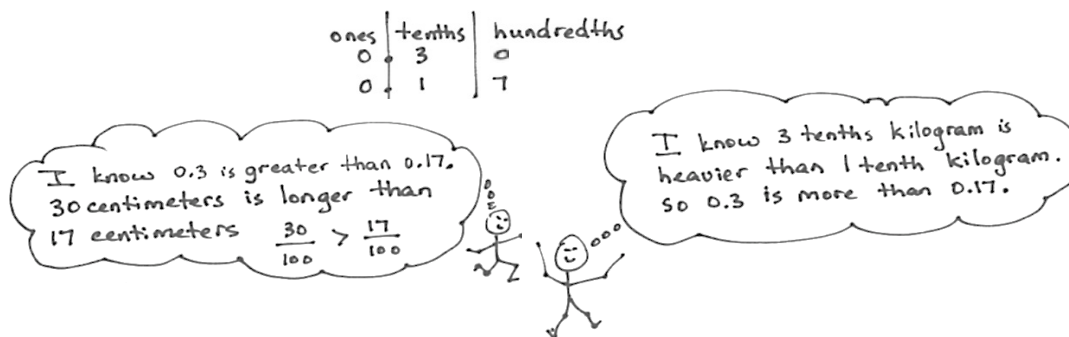 ones tenths hundredths
0 . 3 0
0 . 1 7
I know 0.3 is greater than 0.17.
30 centimeters is longer than
17 centimeters 30/100 > 17/100
I know 3 tenths kilogram is
heavier than 1 tenth kilogram.
So 0.3 is more than 0.17.